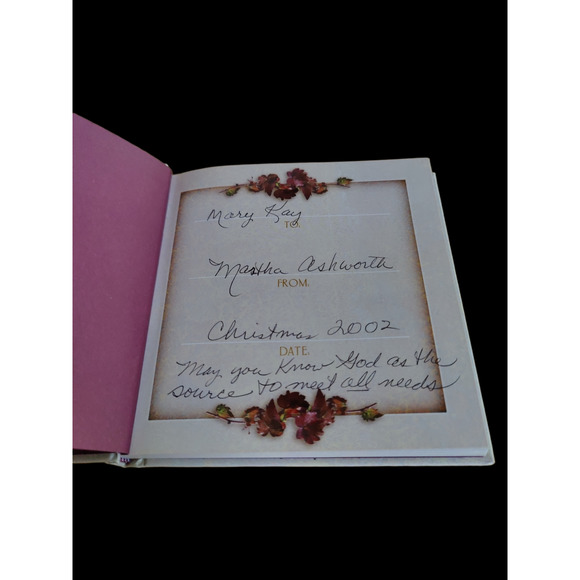 Mary Kay
TO:
Martha Ashworth
FROM:
Christmas 2002
DATE:
May you know God as the
source to meet all needs